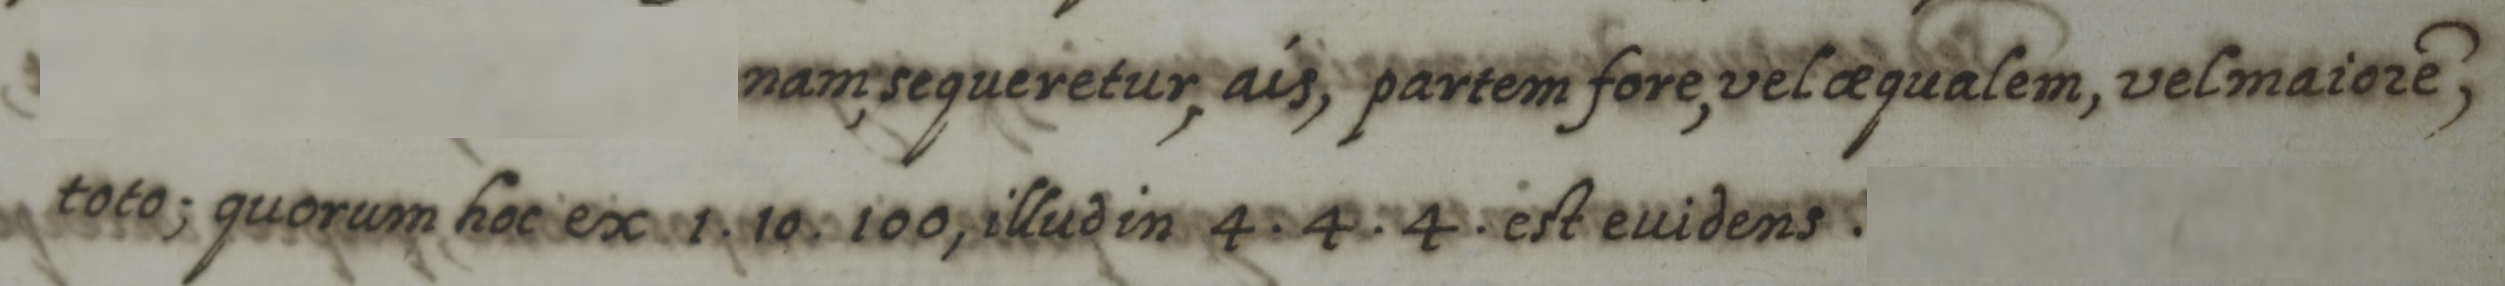 nam, sequeretur, ais, partem fore, vel æqualem, vel maiorē,
toto; quorum hoc ex 1. 10. 100, illud in 4. 4. 4. est euidens.